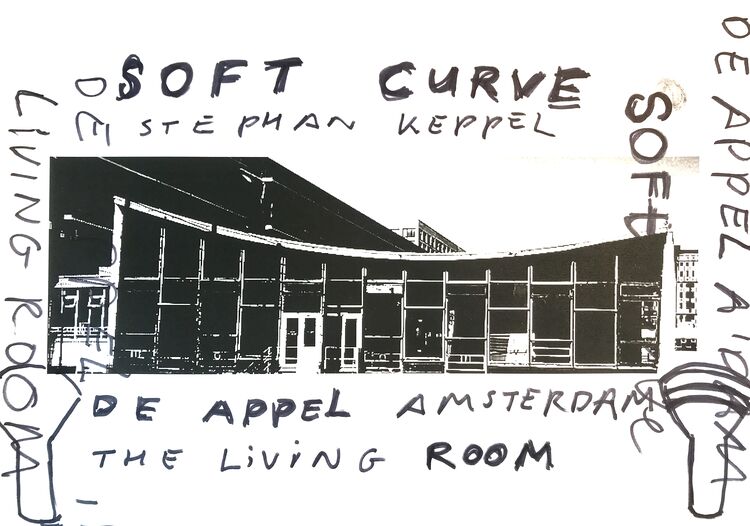 SOFT CURVE
STEPHAN KEPPEL
DE APPEL AMSTERDAM
THE LIVING ROOM
LIVING ROOM
DE
SOFT
DE APPEL A'DAM